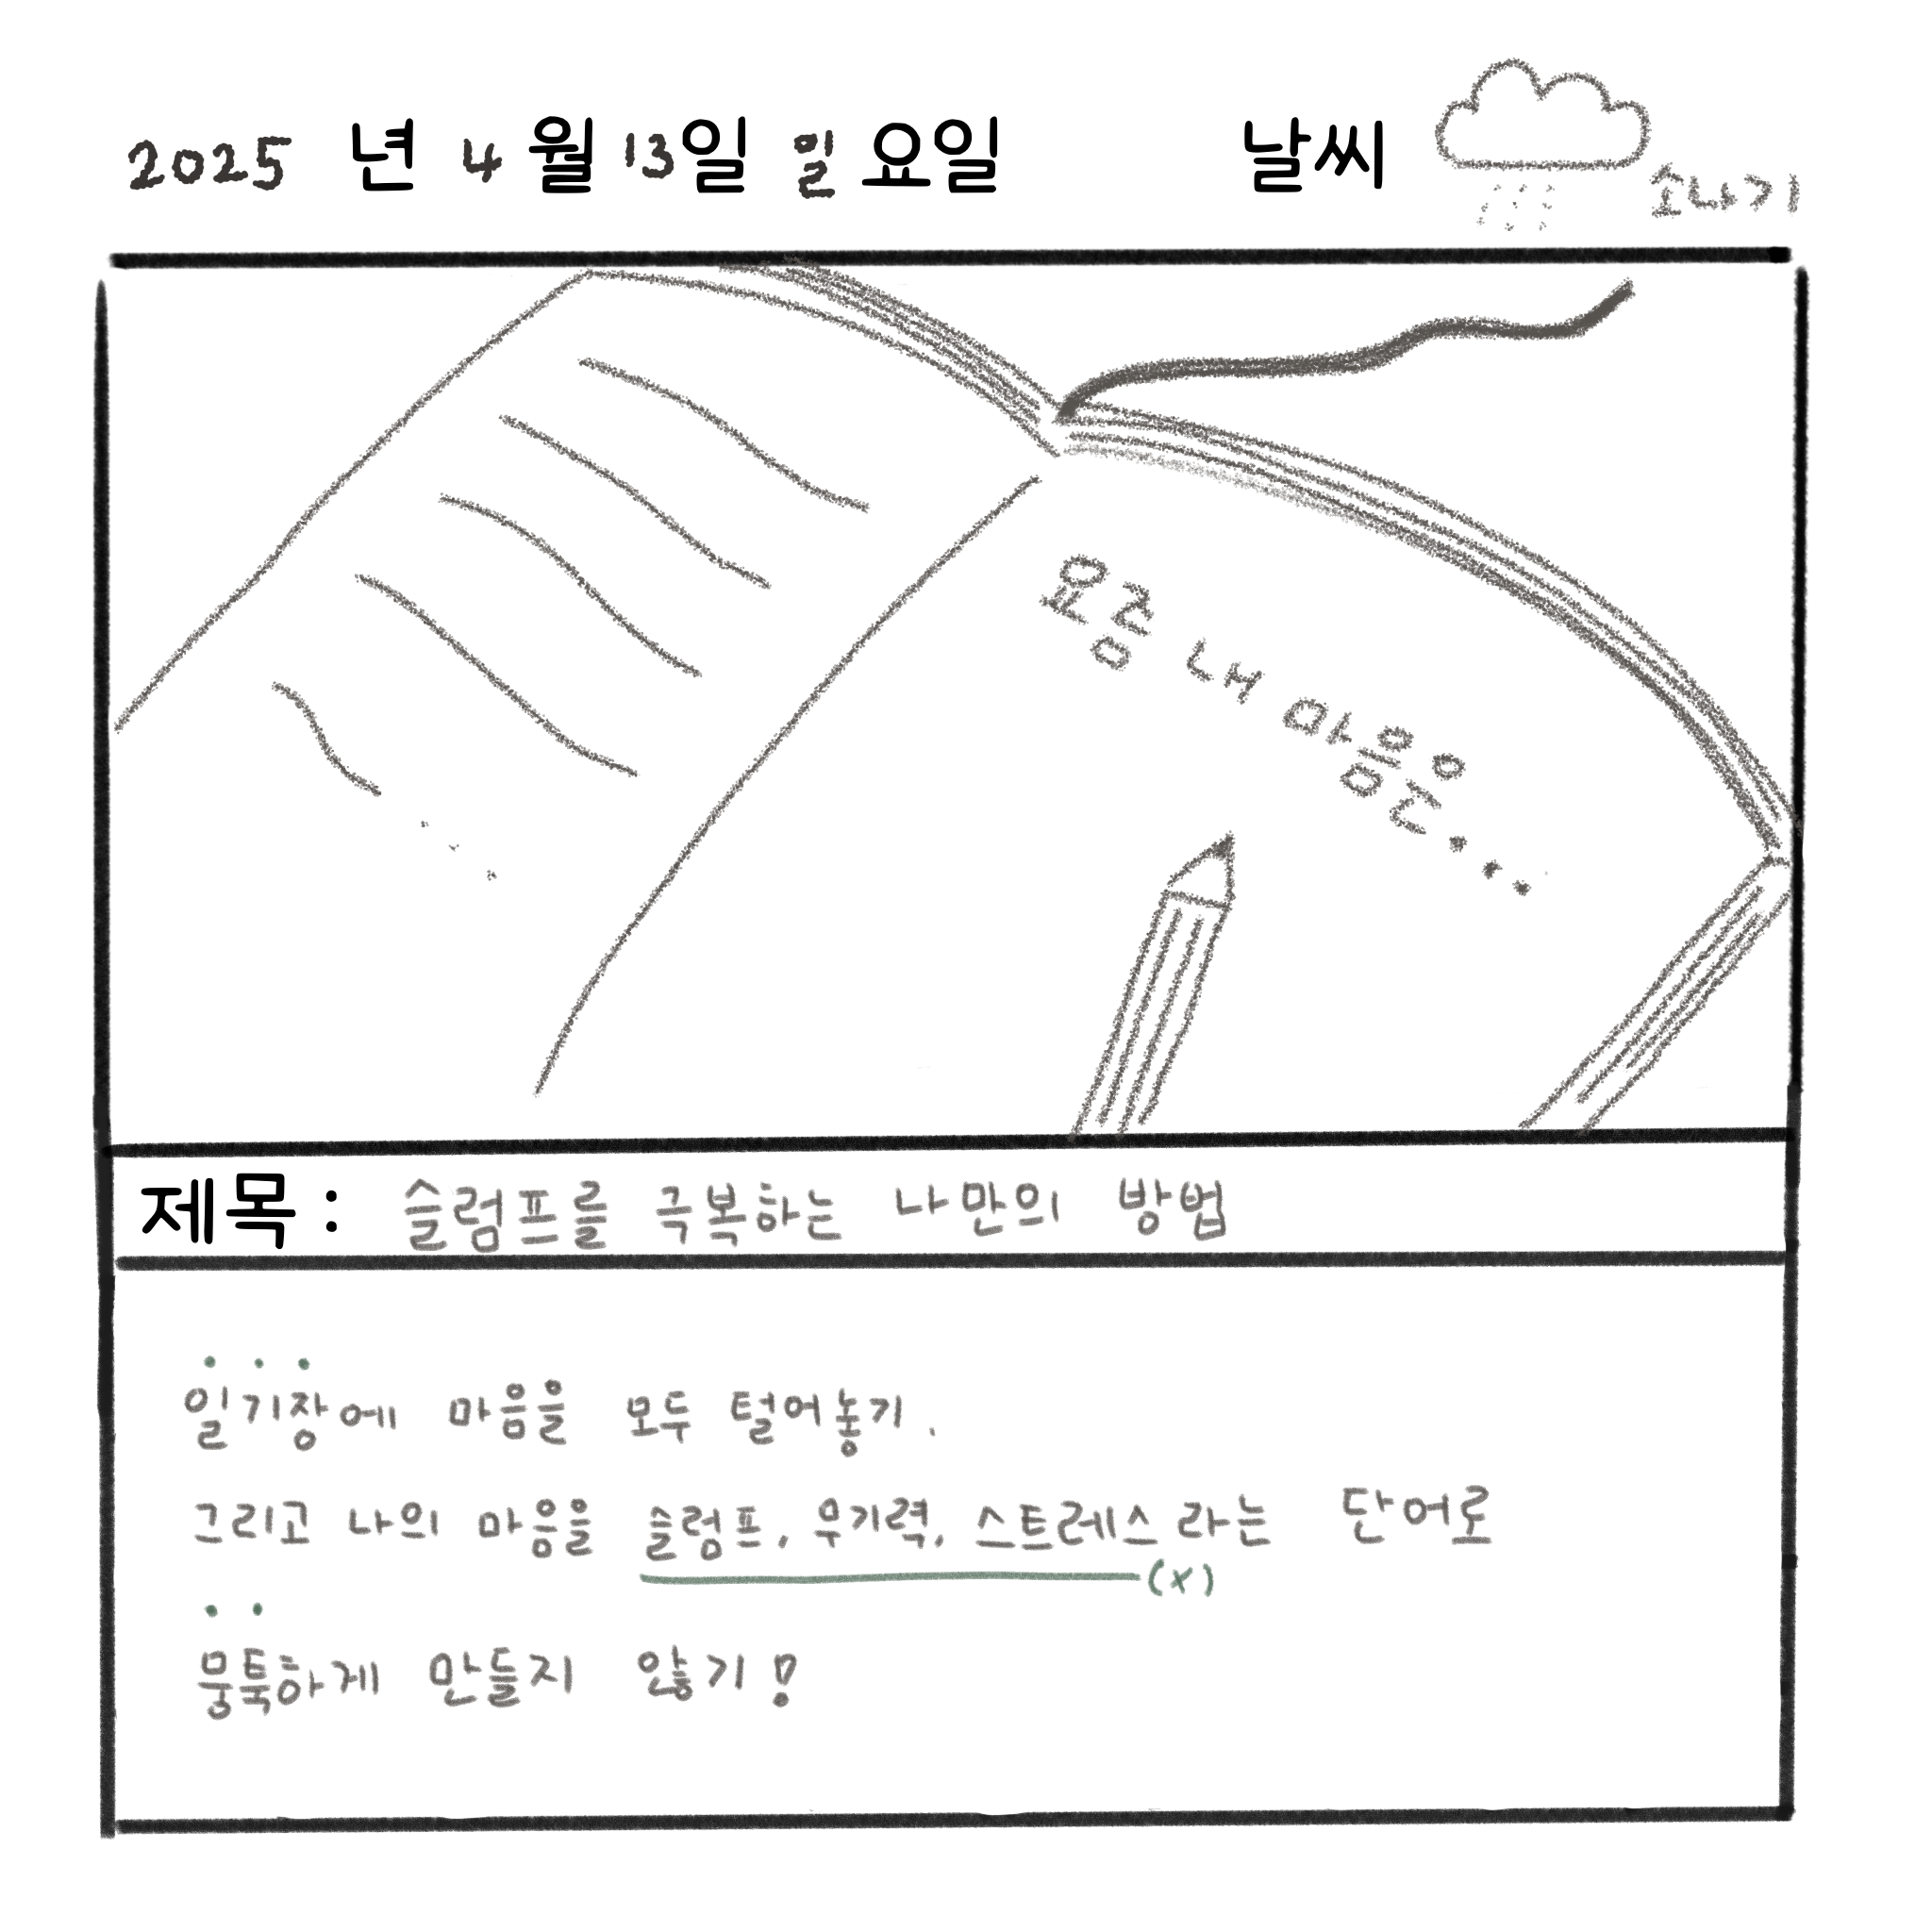 2025 년 4 월 13일 일 요일 날씨 소나기
요즘 내 마음은...
제목 : 슬럼프를 극복하는 나만의 방법
일기장에 마음을 모두 털어놓기.
그리고 나의 마음을 슬럼프, 무기력, 스트레스라는 단어로
(x)
뭉툭하게 만들지 않기!